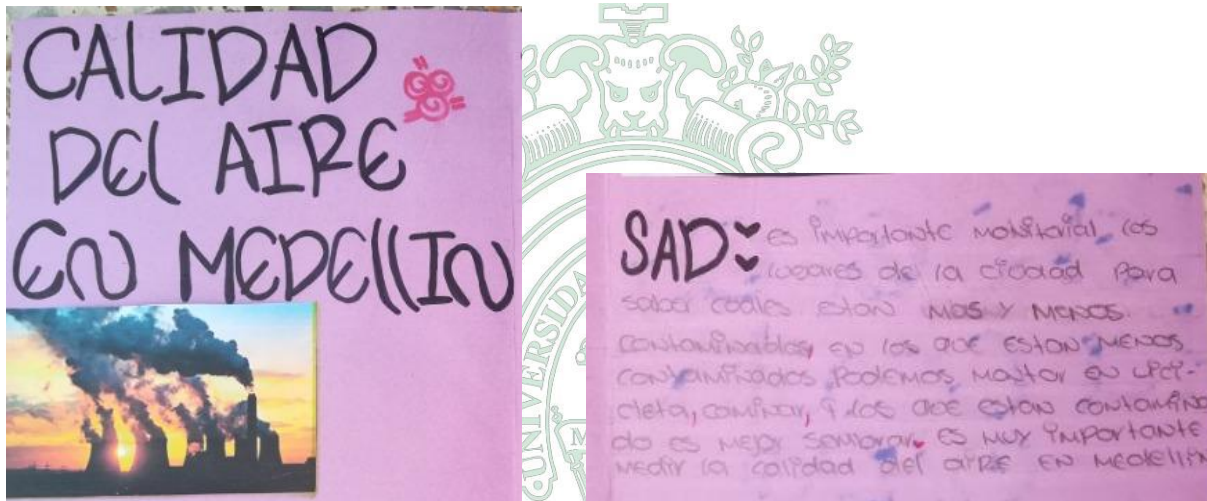 CALIDAD
DEL AIRE
EN MEDELLIN
SAD: es importante monitorial los
lugares de la ciudad para
saber cuales estan mas y menos
contaminados, en los que estan menos
contaminados podemos montar en
cleta, caminar, y los que estan contamina
do es mejor sembrar. es muy importante
medir la calidad del aire en medellin
UNIVERSIDA